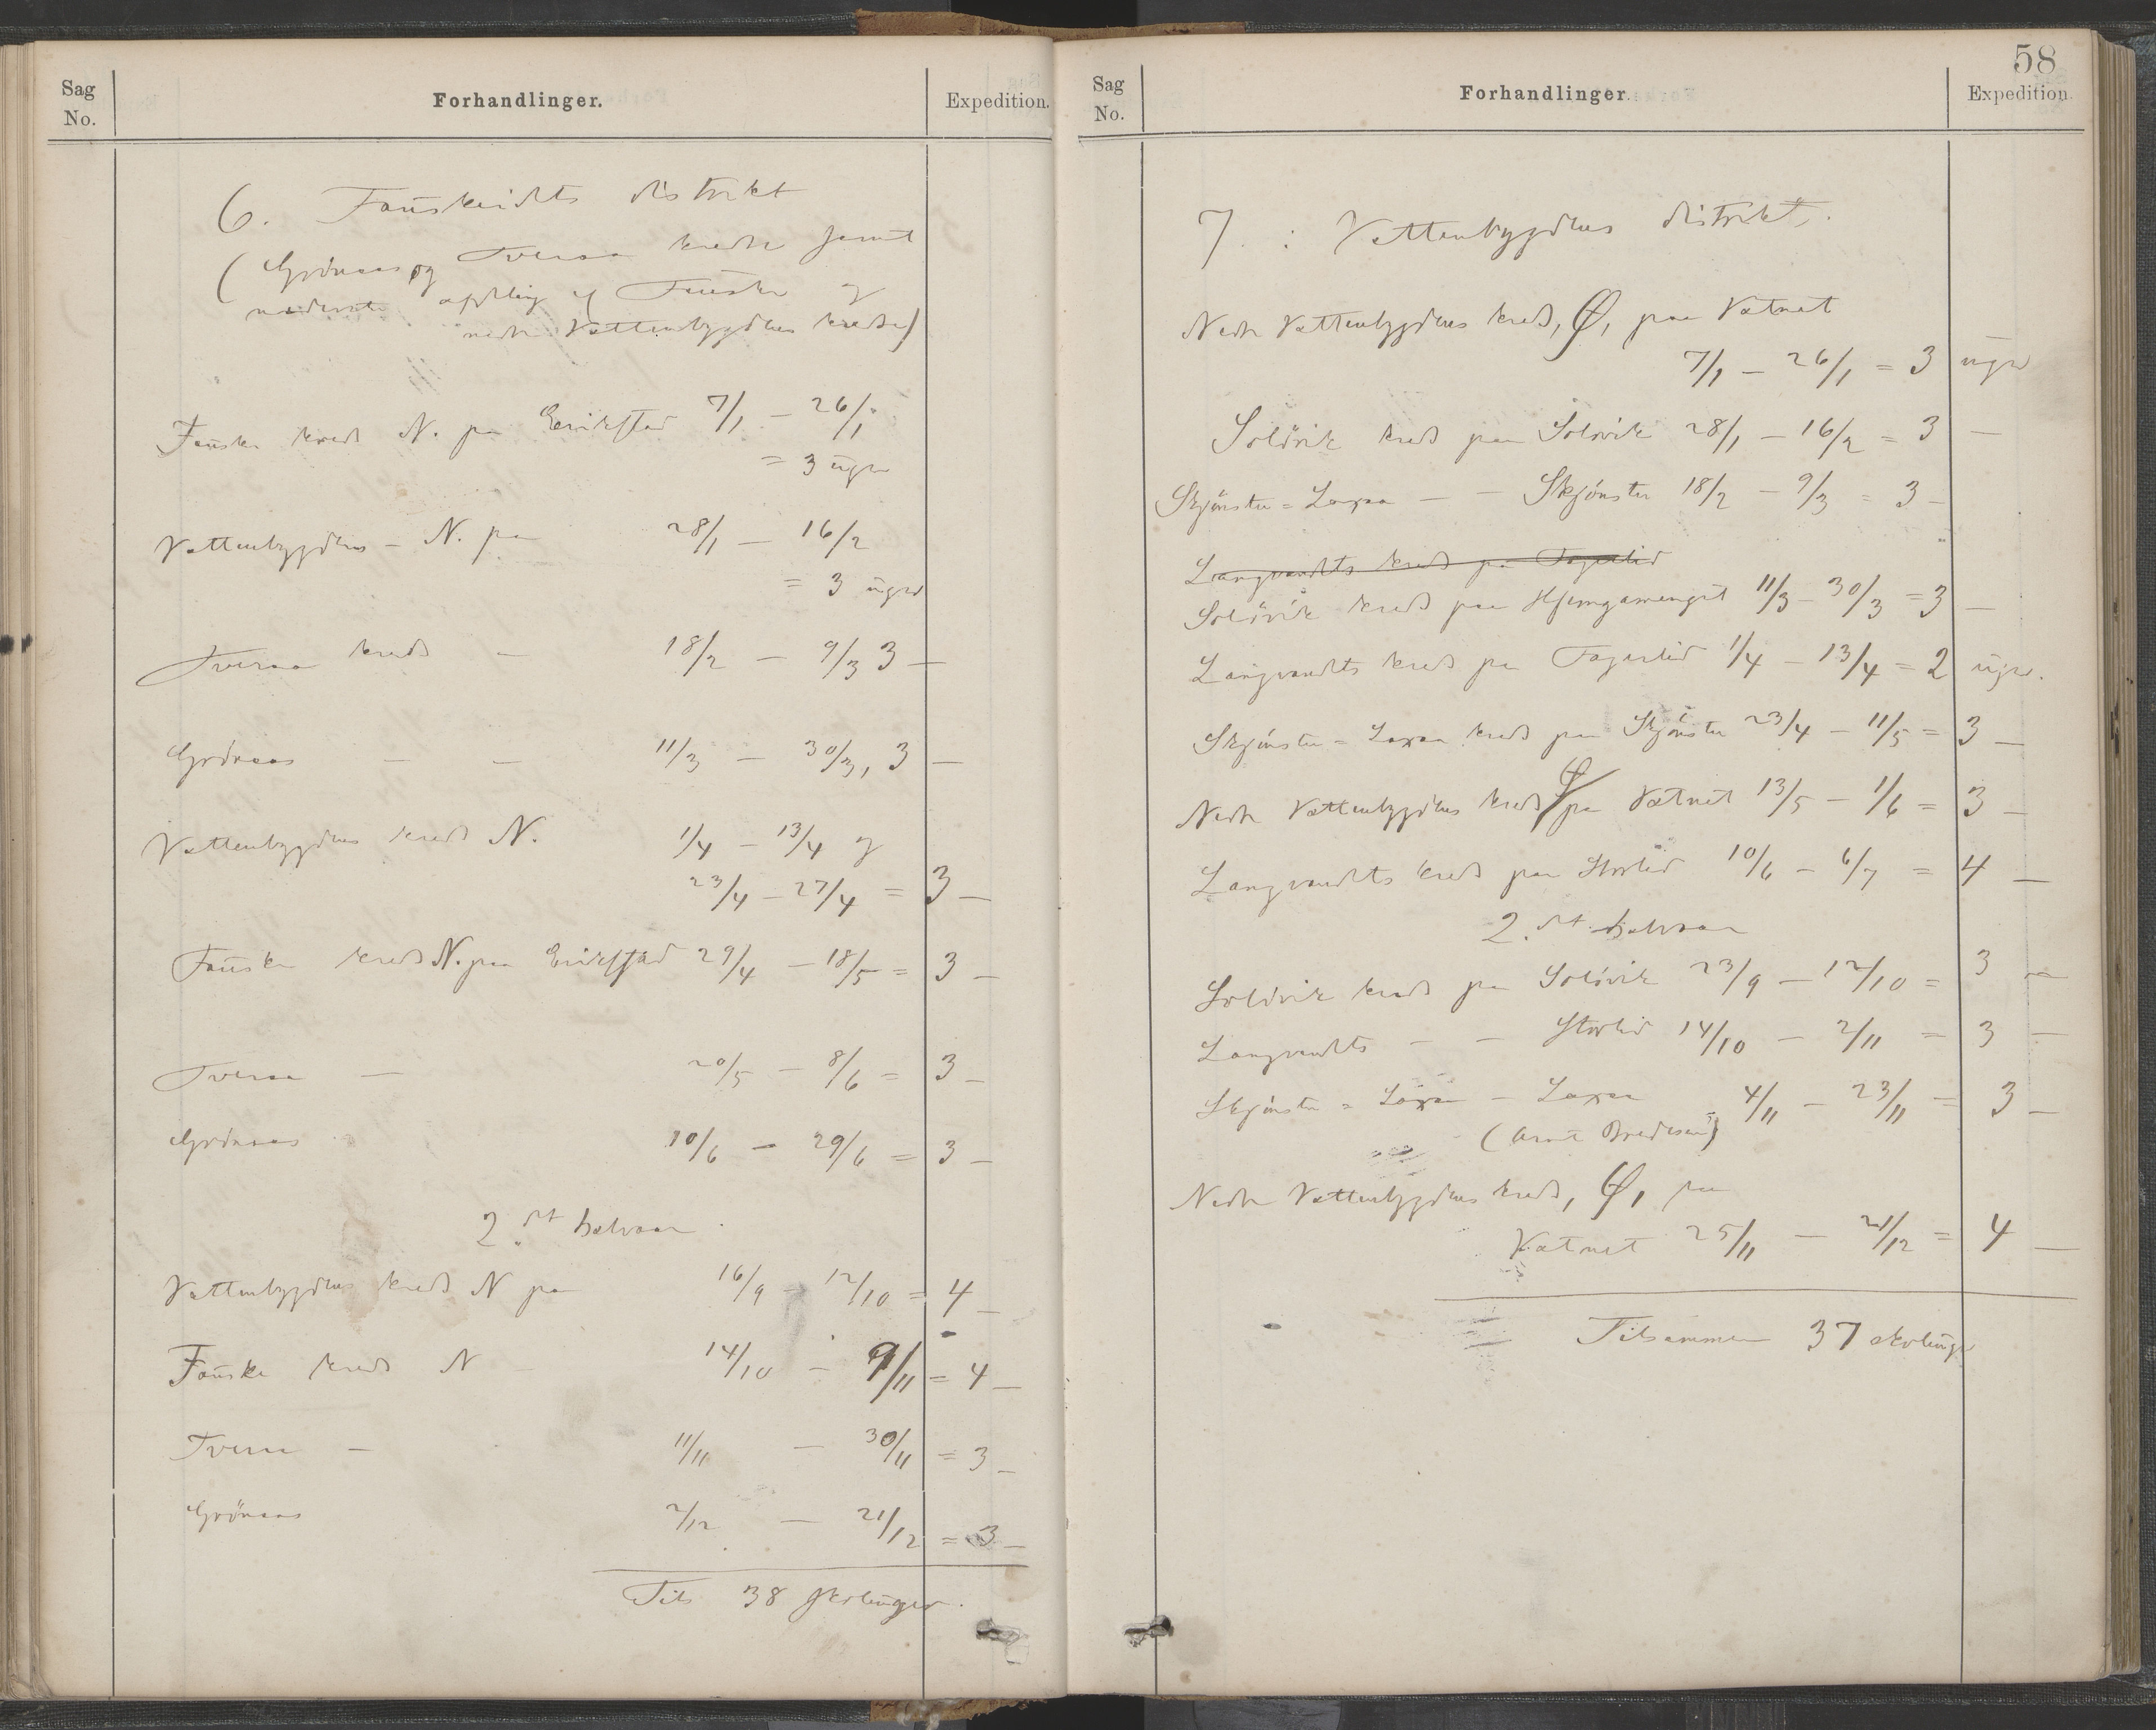 Sag
No.
Forhandlinger.
Expedition.
6. Fauskeidets distrikt
(Grönaas og Tveraa kredse samt
nederste afdeling af Fauske og
nedre Vattenbygdens kredse)
Fauske kreds N. paa Erikstad 7/1 – 26/1
= 3 uger
Vattenbygdens – N. paa 28/1 – 16/2
= 3 uger
Tveraa kreds – 18/2 – 9/3 3 –
Grönaas – – 11/3 – 30/3, 3 –
Vattenbygdens kreds N. 1/4 – 13/4 og
23/4 – 27/4 = 3 –
Fauske kreds N. paa Erikstad 29/4 – 18/5 = 3 –
Tveraa – 20/5 – 8/6 = 3 –
Grönaas 10/6 – 29/6 = 3 –
2.det halvaar.
Vattenbygdens kreds N paa 16/9 – 12/10 = 4 –
Fauske kreds N – 14/10 – 9/11 = 4 –
Tveraa – 11/11 – 30/11 = 3 –
Grönaas 2/12 – 21/12 = 3 –
Tils 38 skoleuger.
58
Sag
No.
Forhandlinger.
Expedition.
7. : Vattenbygdens distrikt.
Nedre Vattenbygdens kreds, Ø, paa Vatnet
7/1 – 26/1 = 3 uger
Solövik kreds paa Solövik 28/1 – 16/2 = 3 –
Skjönstu = Laxaa – – Skjönstu 18/2 – 9/3 = 3 –
Langvandets kreds paa Fagerlid
Solövik kreds paa Hjemgamenget 11/3 – 30/3 = 3 –
Langvandets kreds paa Fagerlid 1/4 – 13/4 = 2 uger.
Skjönstu = Laxaa kreds paa Skjönstu 23/4 – 11/5 = 3 –
Nedre Vattenbygdens kreds Ø paa Vatnet 13/5 – 1/6 = 3 –
Langvandets kreds paa Storlid 10/6 – 6/7 = 4 –
2.det halvaar
Solövik kreds paa Solövik 23/9 – 12/10 = 3 –
Langvandets – – Storlid 14/10 – 2/11 = 3 –
Skjönstu = Laxaa – Laxaa 4/11 – 23/11 = 3 –
(Arnt Bredesen)
Nedre Vattenbygdens kreds, Ø, paa
Vatnet 25/11 – 21/12 = 4 –
Tilsammen 37 skoleuger